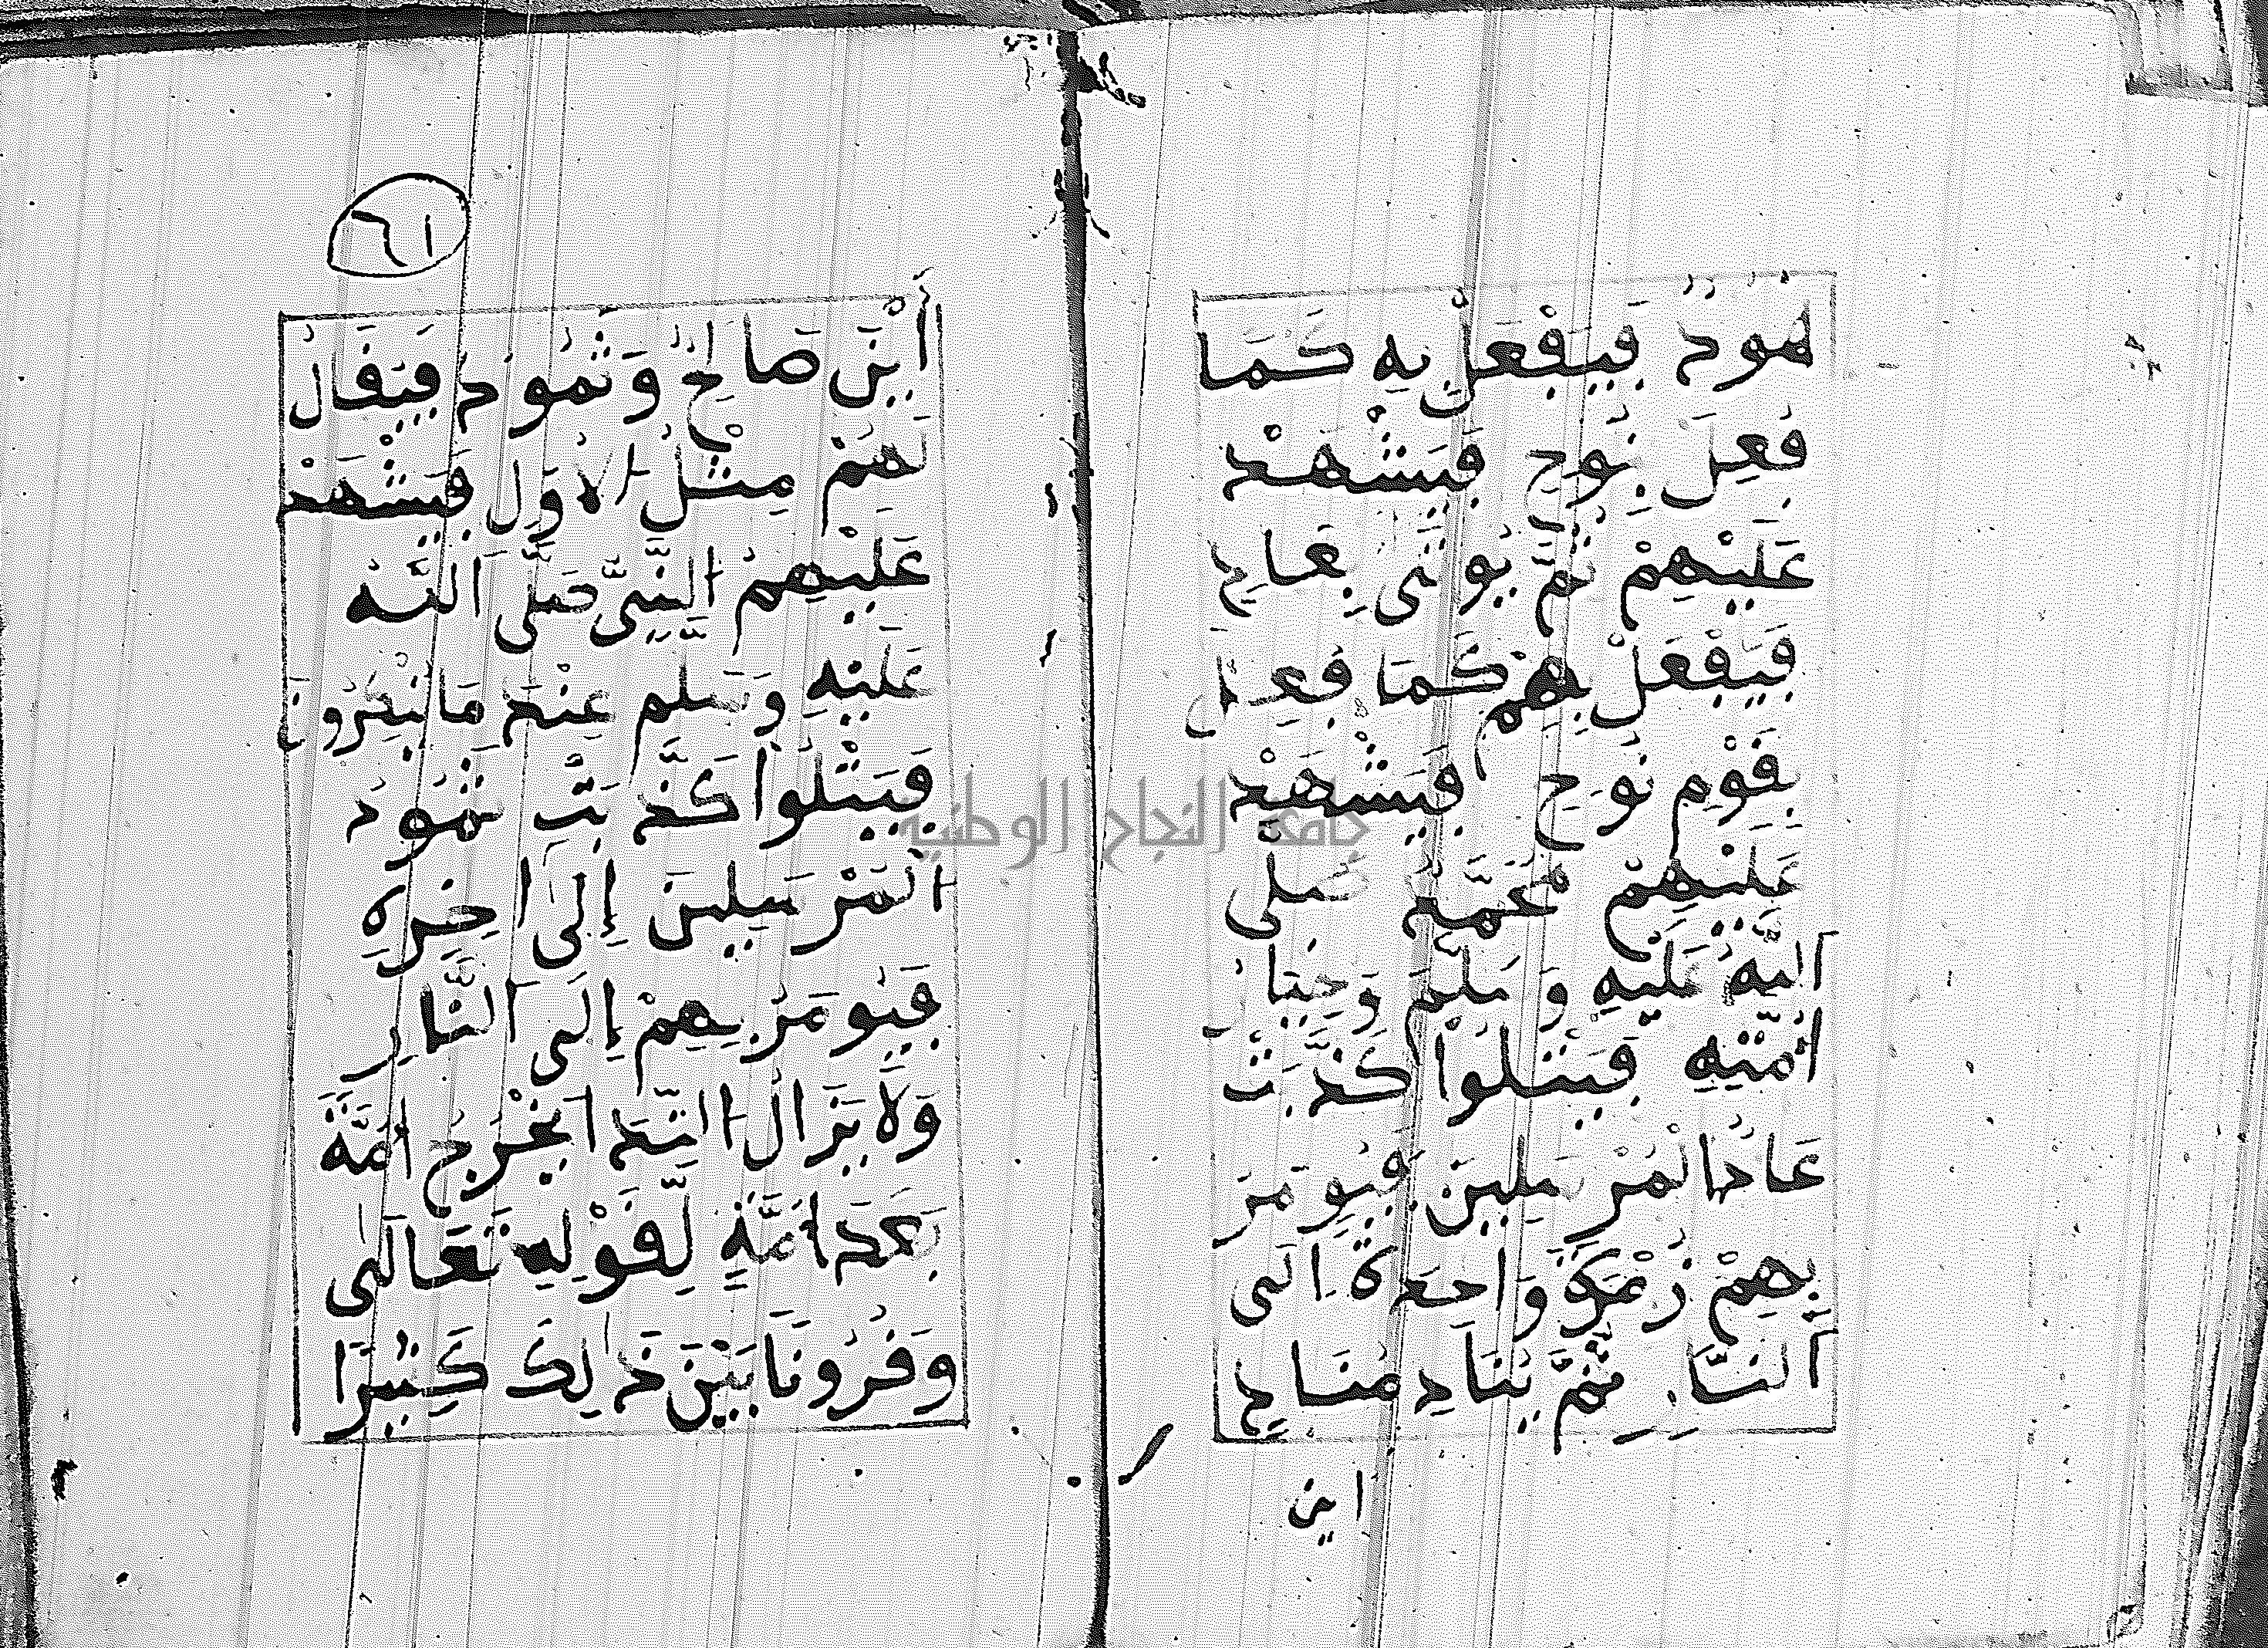 هُودٌ فَيَفْعَلُ بِهِ كَمَا
فُعِلَ بِنُوحٍ فَيَشْهَدُ
عَلَيْهِمْ ثُمَّ يُوتَى بِعَادٍ
فَيَفْعَلُ بِهِمْ كَمَا فُعِلَ
بِقَوْمِ نُوحٍ فَيَشْهَدُ
عَلَيْهِمْ مُحَمَّدٌ صَلَّى
اللَّهُ عَلَيْهِ وَسَلَّمَ وَخِيَارُ
أُمَّتِهِ فَيَتْلُوا كَذَّبَتْ
عَادُ الْمُرْسَلِينَ فَيُومَرُ
بِهِمْ زُمْرَةً وَاحِدَةً إِلَى
النَّارِ ثُمَّ يُنَادِ مُنَادٍ
اين
٦١
أَيْنَ صَالِحٌ وَثَمُودُ فَيُقَالُ
لَهُمْ مِثْلُ الأَوَّلِ فَيَشْهَدُ
عَلَيْهِمُ النَّبِيُّ صَلَّى اللَّهُ
عَلَيْهِ وَسَلَّمَ عِنْدَ مَا يُنْكِرُونَ
فَيَتْلُوا كَذَّبَتْ ثَمُودُ
الْمُرْسَلِينَ إِلَى اخِرِهِ
فَيُومَرُ بِهِمْ إِلَى النَّارِ
وَلَا يَزَالُ اللَّهُ يُخْرِجُ أُمَّةً
بَعْدَ أُمَّةٍ لِقَوْلِهِ تَعَالَى
وَقُرُونًا بَيْنَ ذَلِكَ كَثِيرًا
جامعة النجاح الوطنية